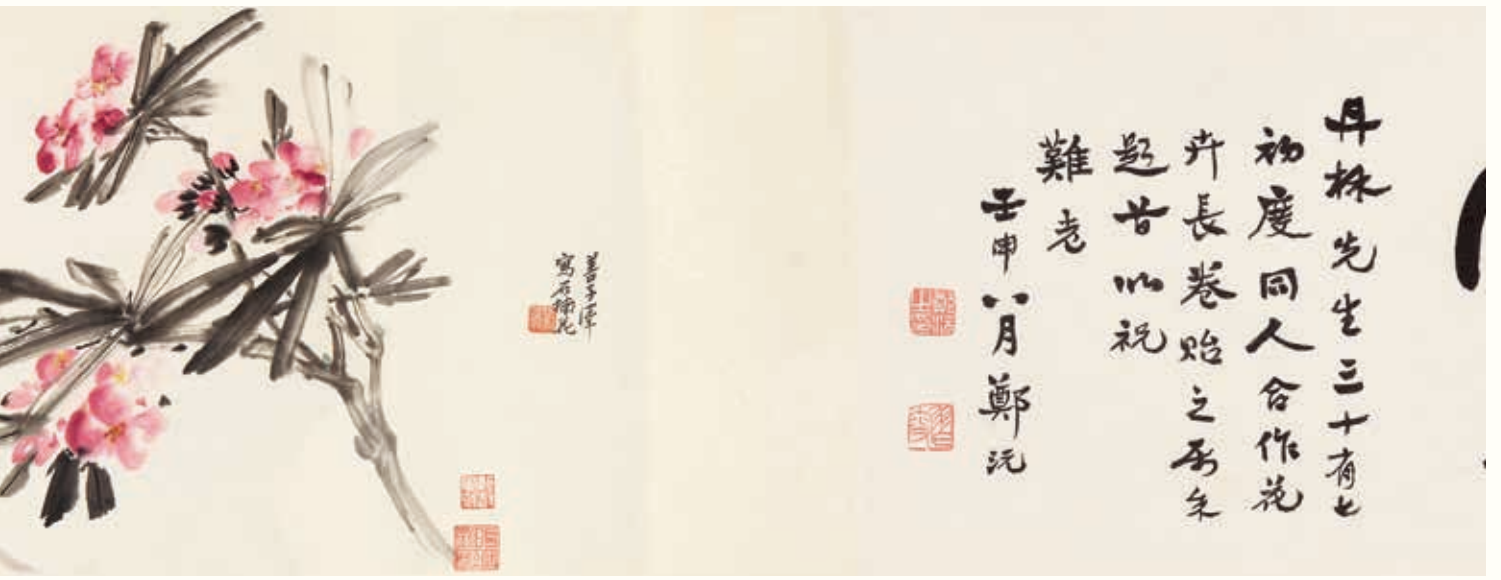 丹林先生三十有七
初度同人合作花
卉長卷貽之属余
題首以祝
難老
壬申八月鄭沅
善子澤
寫石楠花